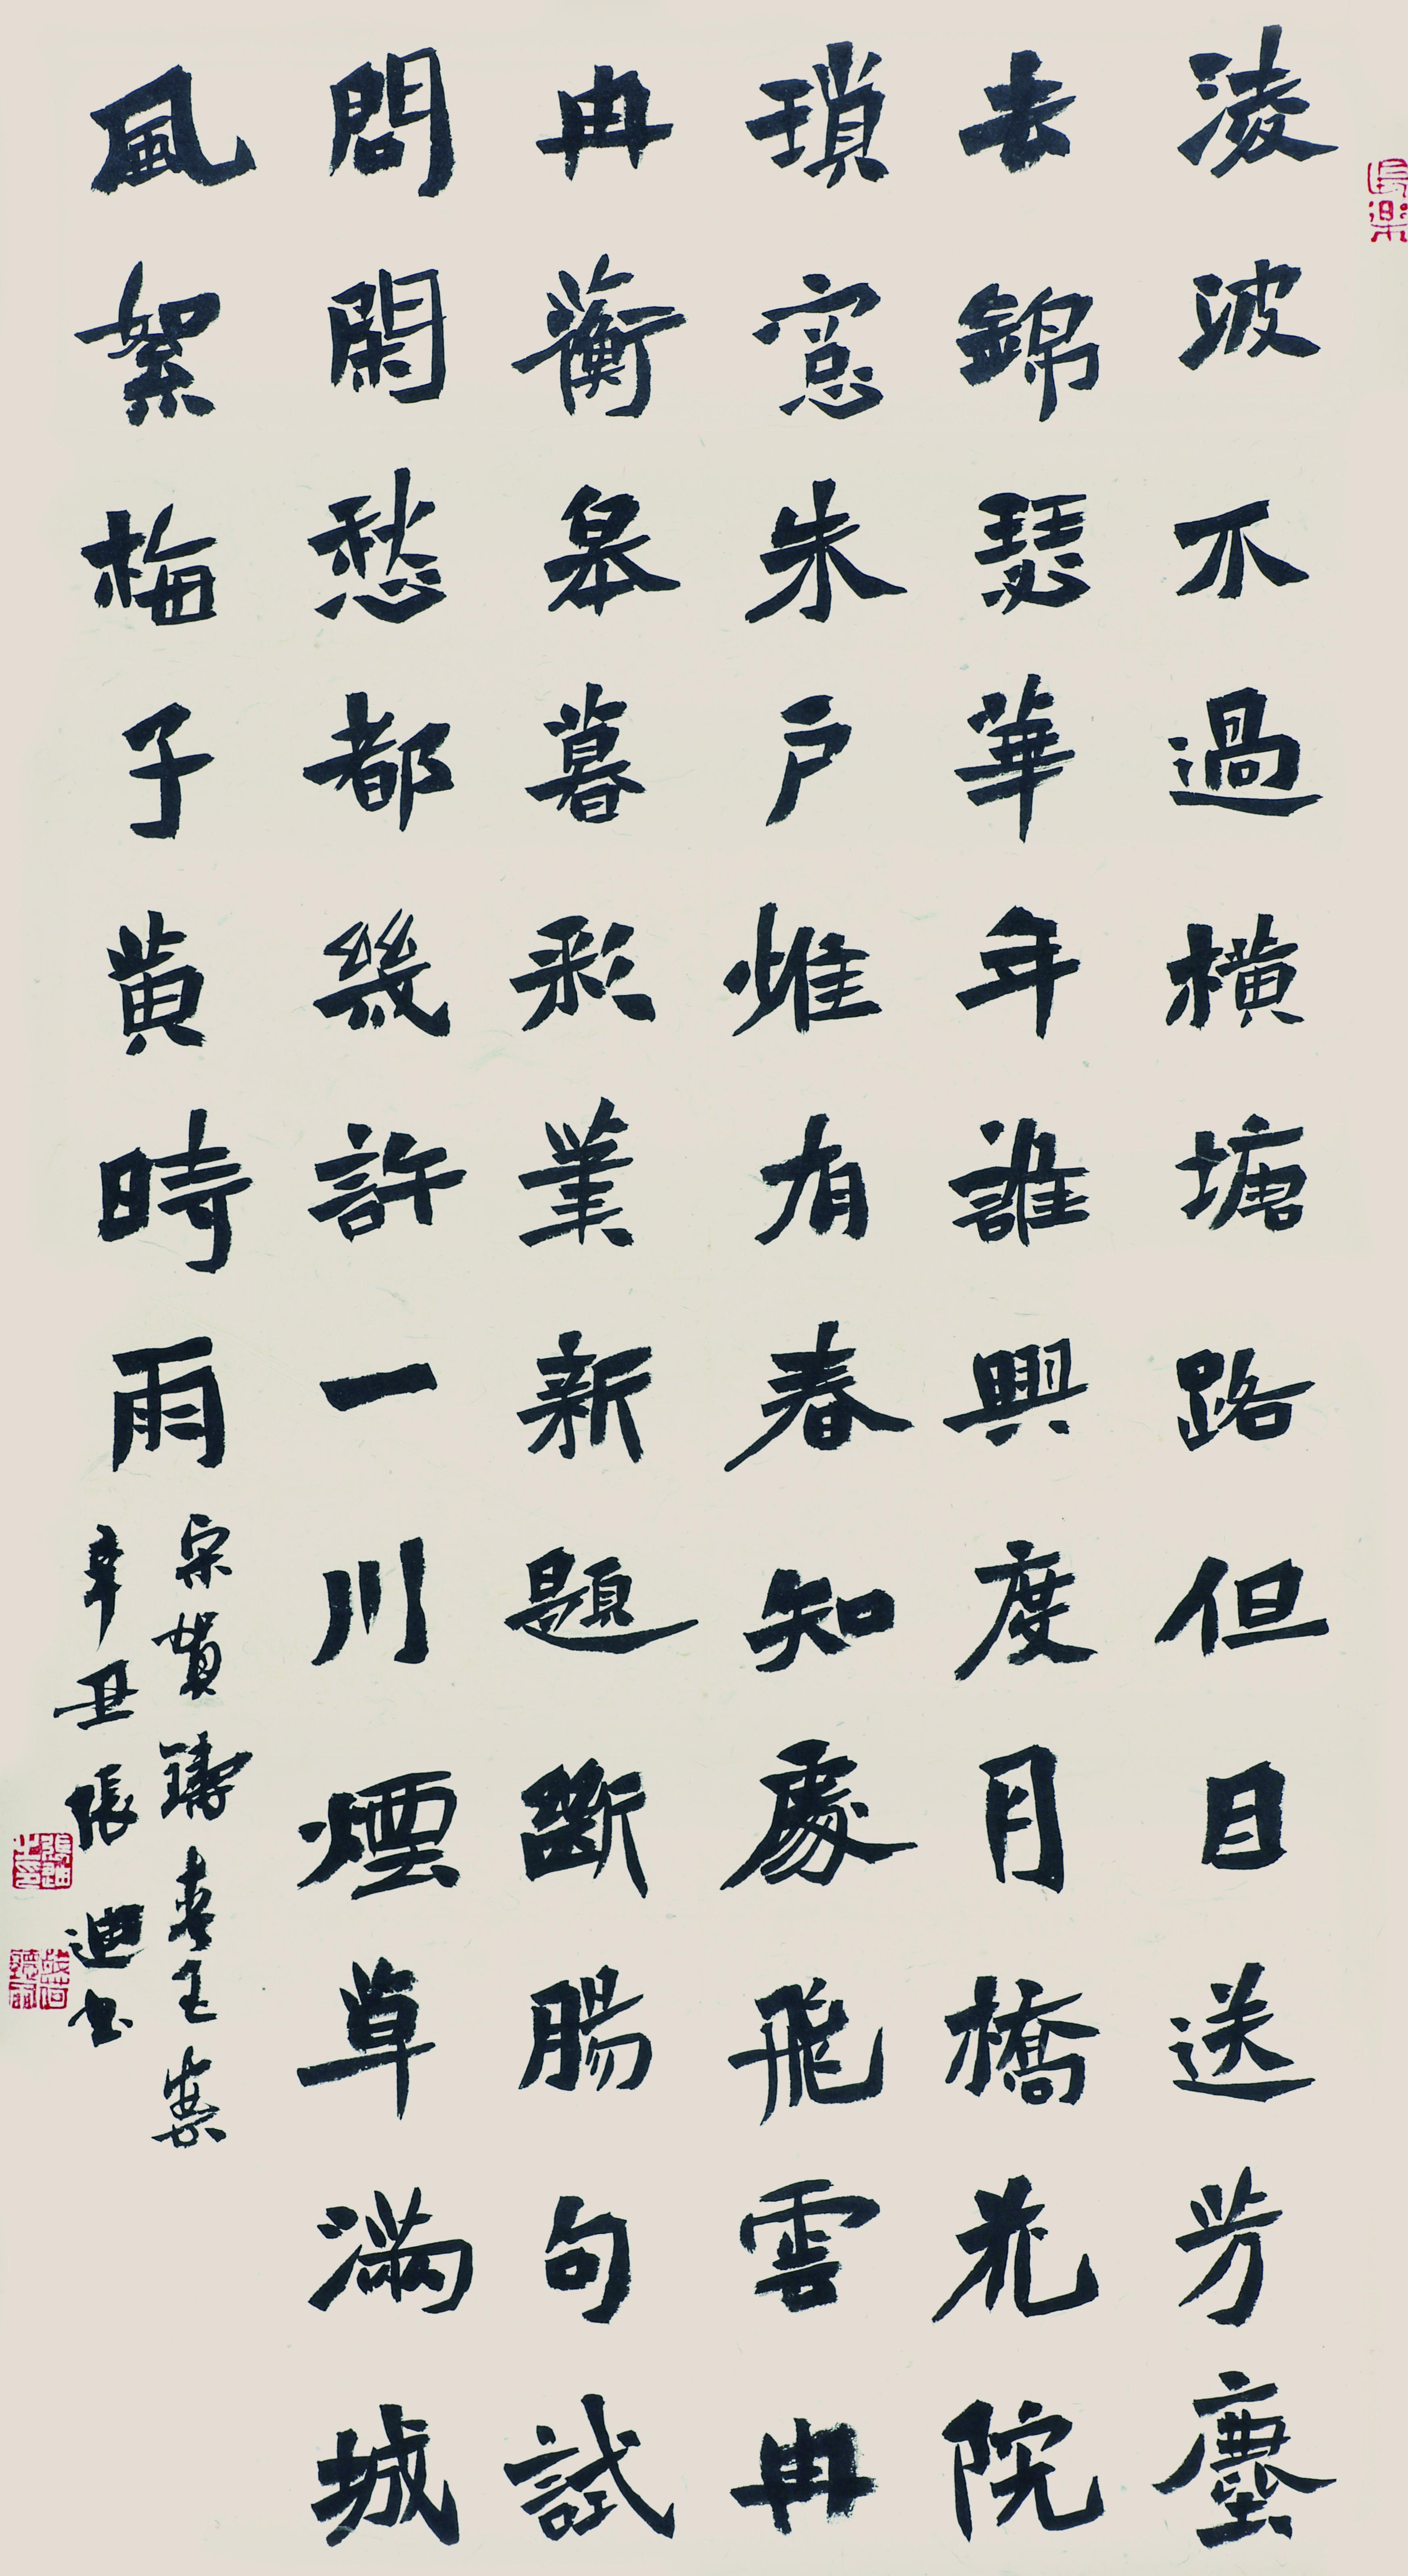 長樂
淩波不過橫塘路但目送芳塵
去錦瑟華年誰與度月橋花院
瑣窓朱戶惟有春知處飛雲冉
冉蘅皋暮彩筆新題斷腸句試
問閑愁都幾許一川煙草滿城
風絮梅子黃時雨
宋賀鑄青玉案
辛丑張迪書
張迪之印